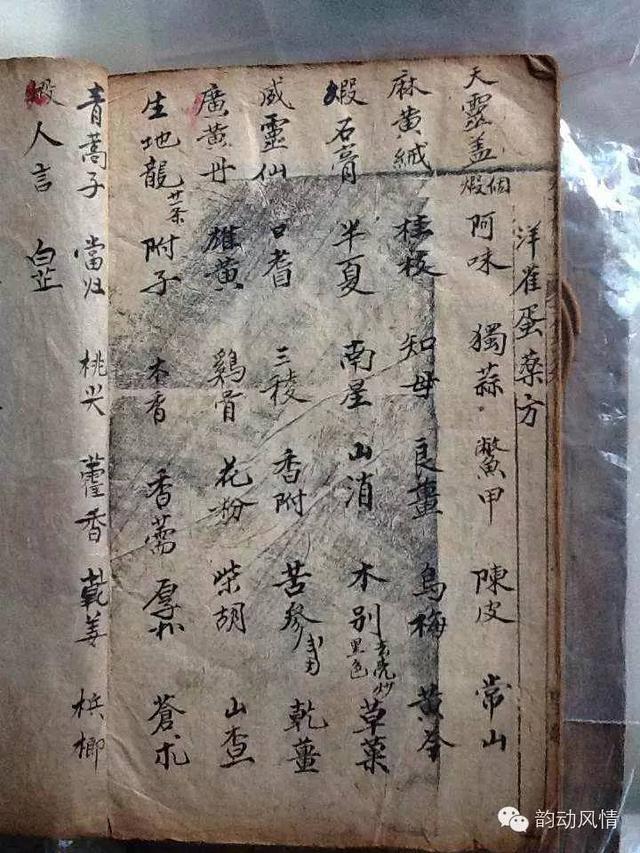 洋雀蛋薬方
天靈盖 個煅 阿味 獨蒜 鱉甲 陳皮 常山
麻黄絨 桂枝 知母 良薑 烏梅 黄芩
煅石膏 半夏 南星 山消 木别 去壳炒黑色 草菓
威靈仙 口耆 三稜 香附 苦參 乾薑
廣黄丹 雄黄 鷄骨 花粉 柴胡 山查
生地龍 廿条 附子 木香 香薷 厚朴 蒼术
青蒿子 當归 桃尖 藿香 乾姜 梹榔
人言 白芷
韵动风情